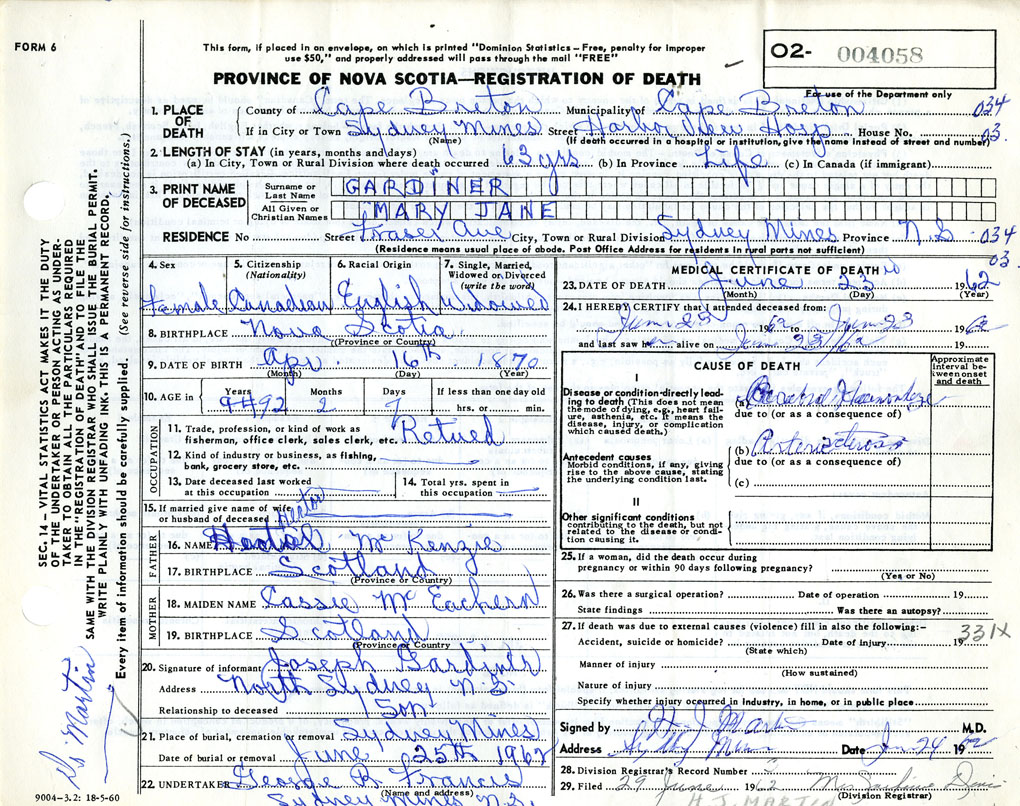 FORM 6
This form, if placed in an envelope, on which is printed "Dominion Statistics – Free, penalty for improper
use $50," and properly addressed will pass through the mail "FREE"
O2- 004058
For use of the Department only
PROVINCE OF NOVA SCOTIA—REGISTRATION OF DEATH
1. PLACE OF DEATH
County of Cape Breton Municipality of Cape Breton 034
If in City or Town Sydney Mines Street Harbor View Hosp House No. 03
(Name) (If death occurred in a hospital or institution, give the name instead of street and number)
2. LENGTH OF STAY (in years, months and days)
(a) In City, Town or Rural Division where death occurred 63 yrs (b) In Province Life (c) In Canada (if immigrant)
3. PRINT NAME OF DECEASED
Surname or Last Name GARDINER
All Given or Christian Names MARY JANE
RESIDENCE No Street Fraser Ave City, Town or Rural Division Sydney Mines Province N.S. 034
(Residence means usual place of abode. Post Office Address for residents in rural parts not sufficient) 03
4. Sex Female
5. Citizenship (Nationality) Canadian
6. Racial Origin English
7. Single, Married, Widowed or Divorced (write the word) Widowed
8. BIRTHPLACE Nova Scotia
(Province or Country)
9. DATE OF BIRTH Apr. 16th 1870
(Month) (Day) (Year)
10. AGE in Years 92 Months 2 Days 7 If less than one day old hrs. or min.
OCCUPATION
11. Trade, profession, or kind of work as fisherman, office clerk, sales clerk, etc. Retired
12. Kind of industry or business, as fishing, bank, grocery store, etc.
13. Date deceased last worked at this occupation
14. Total yrs. spent in this occupation
15. If married give name of wife or husband of deceased
FATHER
Hector
16. NAME McKenzie
17. BIRTHPLACE Scotland
(Province or Country)
MOTHER
18. MAIDEN NAME Cassie McEachern
19. BIRTHPLACE Scotland
(Province or Country
20. Signature of informant Joseph Gardiner
Address North Sydney N.S.
Relationship to deceased Son
21. Place of burial, cremation or removal Sydney Mines
Date of burial or removal June 25th 1962
22. UNDERTAKER George R Francis
(Name and address)
Sydney Mines N.S.
MEDICAL CERTIFICATE OF DEATH
23. DATE OF DEATH June 23 1962
(Month) (Day) (Year)
24. I HEREBY CERTIFY that I attended deceased from:
June 23 1962 to June 23 1962
and last saw her alive on June 23/62 19
CAUSE OF DEATH
Approximate interval between onset and death
I
Disease or condition directly leading to death (This does not mean the mode of dying, e.g., heart failure, asthenia, etc. It means the disease, injury, or complication which caused death.)
(a) Cerebral Haemorrhage
due to (or as a consequence of)
Antecedent causes
Morbid conditions, if any, giving rise to the above cause, stating the underlying condition last.
(b) Arteriosclerosis
due to (or as a consequence of)
(c)
II
Other significant conditions contributing to the death, but not related to the disease or condition causing it.
25. If a woman, did the death occur during
pregnancy or within 90 days following pregnancy?
(Yes or No)
26. Was there a surgical operation? Date of operation 19
State findings Was there an autopsy?
27. If death was due to external causes (violence) fill in also the following:- 331X
Accident, suicide or homicide? Date of injury 19
(State which)
Manner of injury
(How sustained)
Nature of injury
Specify whether injury occurred in industry, in home, or in public place
Signed by H J Martin M.D.
Address Sydney Mines Date Jun 24 1962
28. Division Registrar's Record Number
29. Filed 29 June 1962
(Division Registrar)
H.J. MARTIN
SEC. 14 – VITAL STATISTICS ACT MAKES IT THE DUTY
OF THE UNDERTAKER OR PERSON ACTING AS UNDER-
TAKER TO OBTAIN ALL THE PARTICULARS REQUIRED
IN THE "REGISTRATION OF DEATH" AND TO FILE THE
SAME WITH THE DIVISION REGISTRAR WHO SHALL ISSUE THE BURIAL PERMIT.
WRITE PLAINLY WITH UNFADING INK. THIS IS A PERMANENT RECORD.
Every item of information should be carefully supplied. (See reverse side for instructions.)
Dr Martin
9004-3.2: 18-5-60